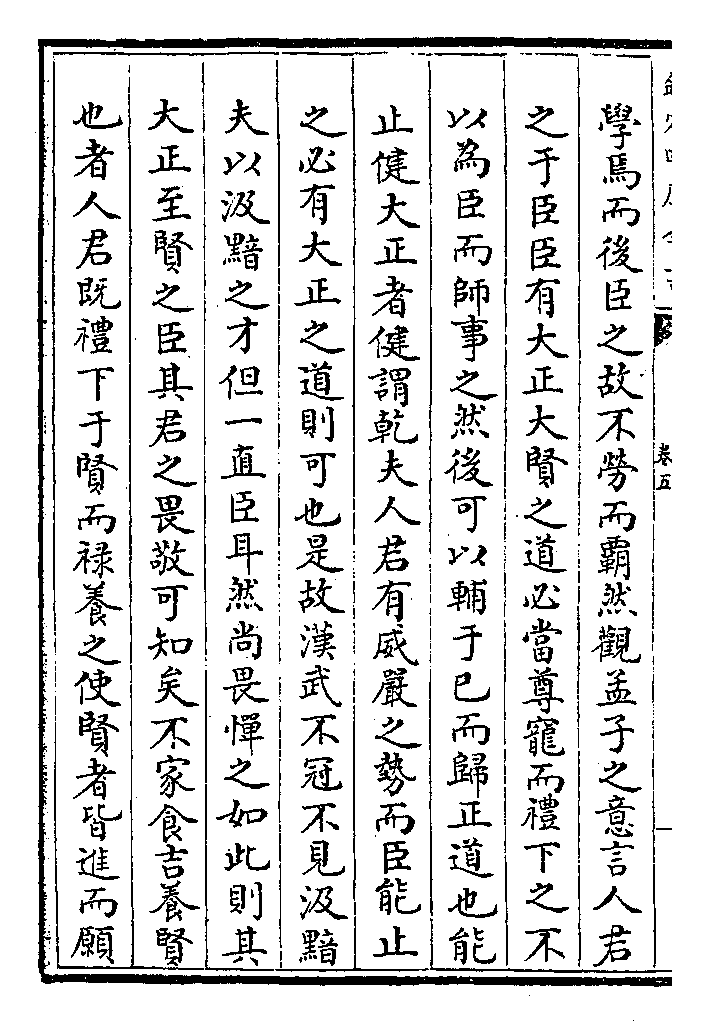 學焉而後臣之故不勞而霸然觀孟子之意言人君
之于臣臣有大正大賢之道必當尊寵而禮下之不
以為臣而師事之然後可以輔于已而歸正道也能
止健大正者健謂乾夫人君有威嚴之勢而臣能止
之必有大正之道則可也是故漢武不冠不見汲黯
夫以汲黯之才但一直臣耳然尚畏憚之如此則其
大正至賢之臣其君之畏敬可知矣不家食吉養賢
也者人君既禮下于賢而祿養之使賢者皆進而願
卷五